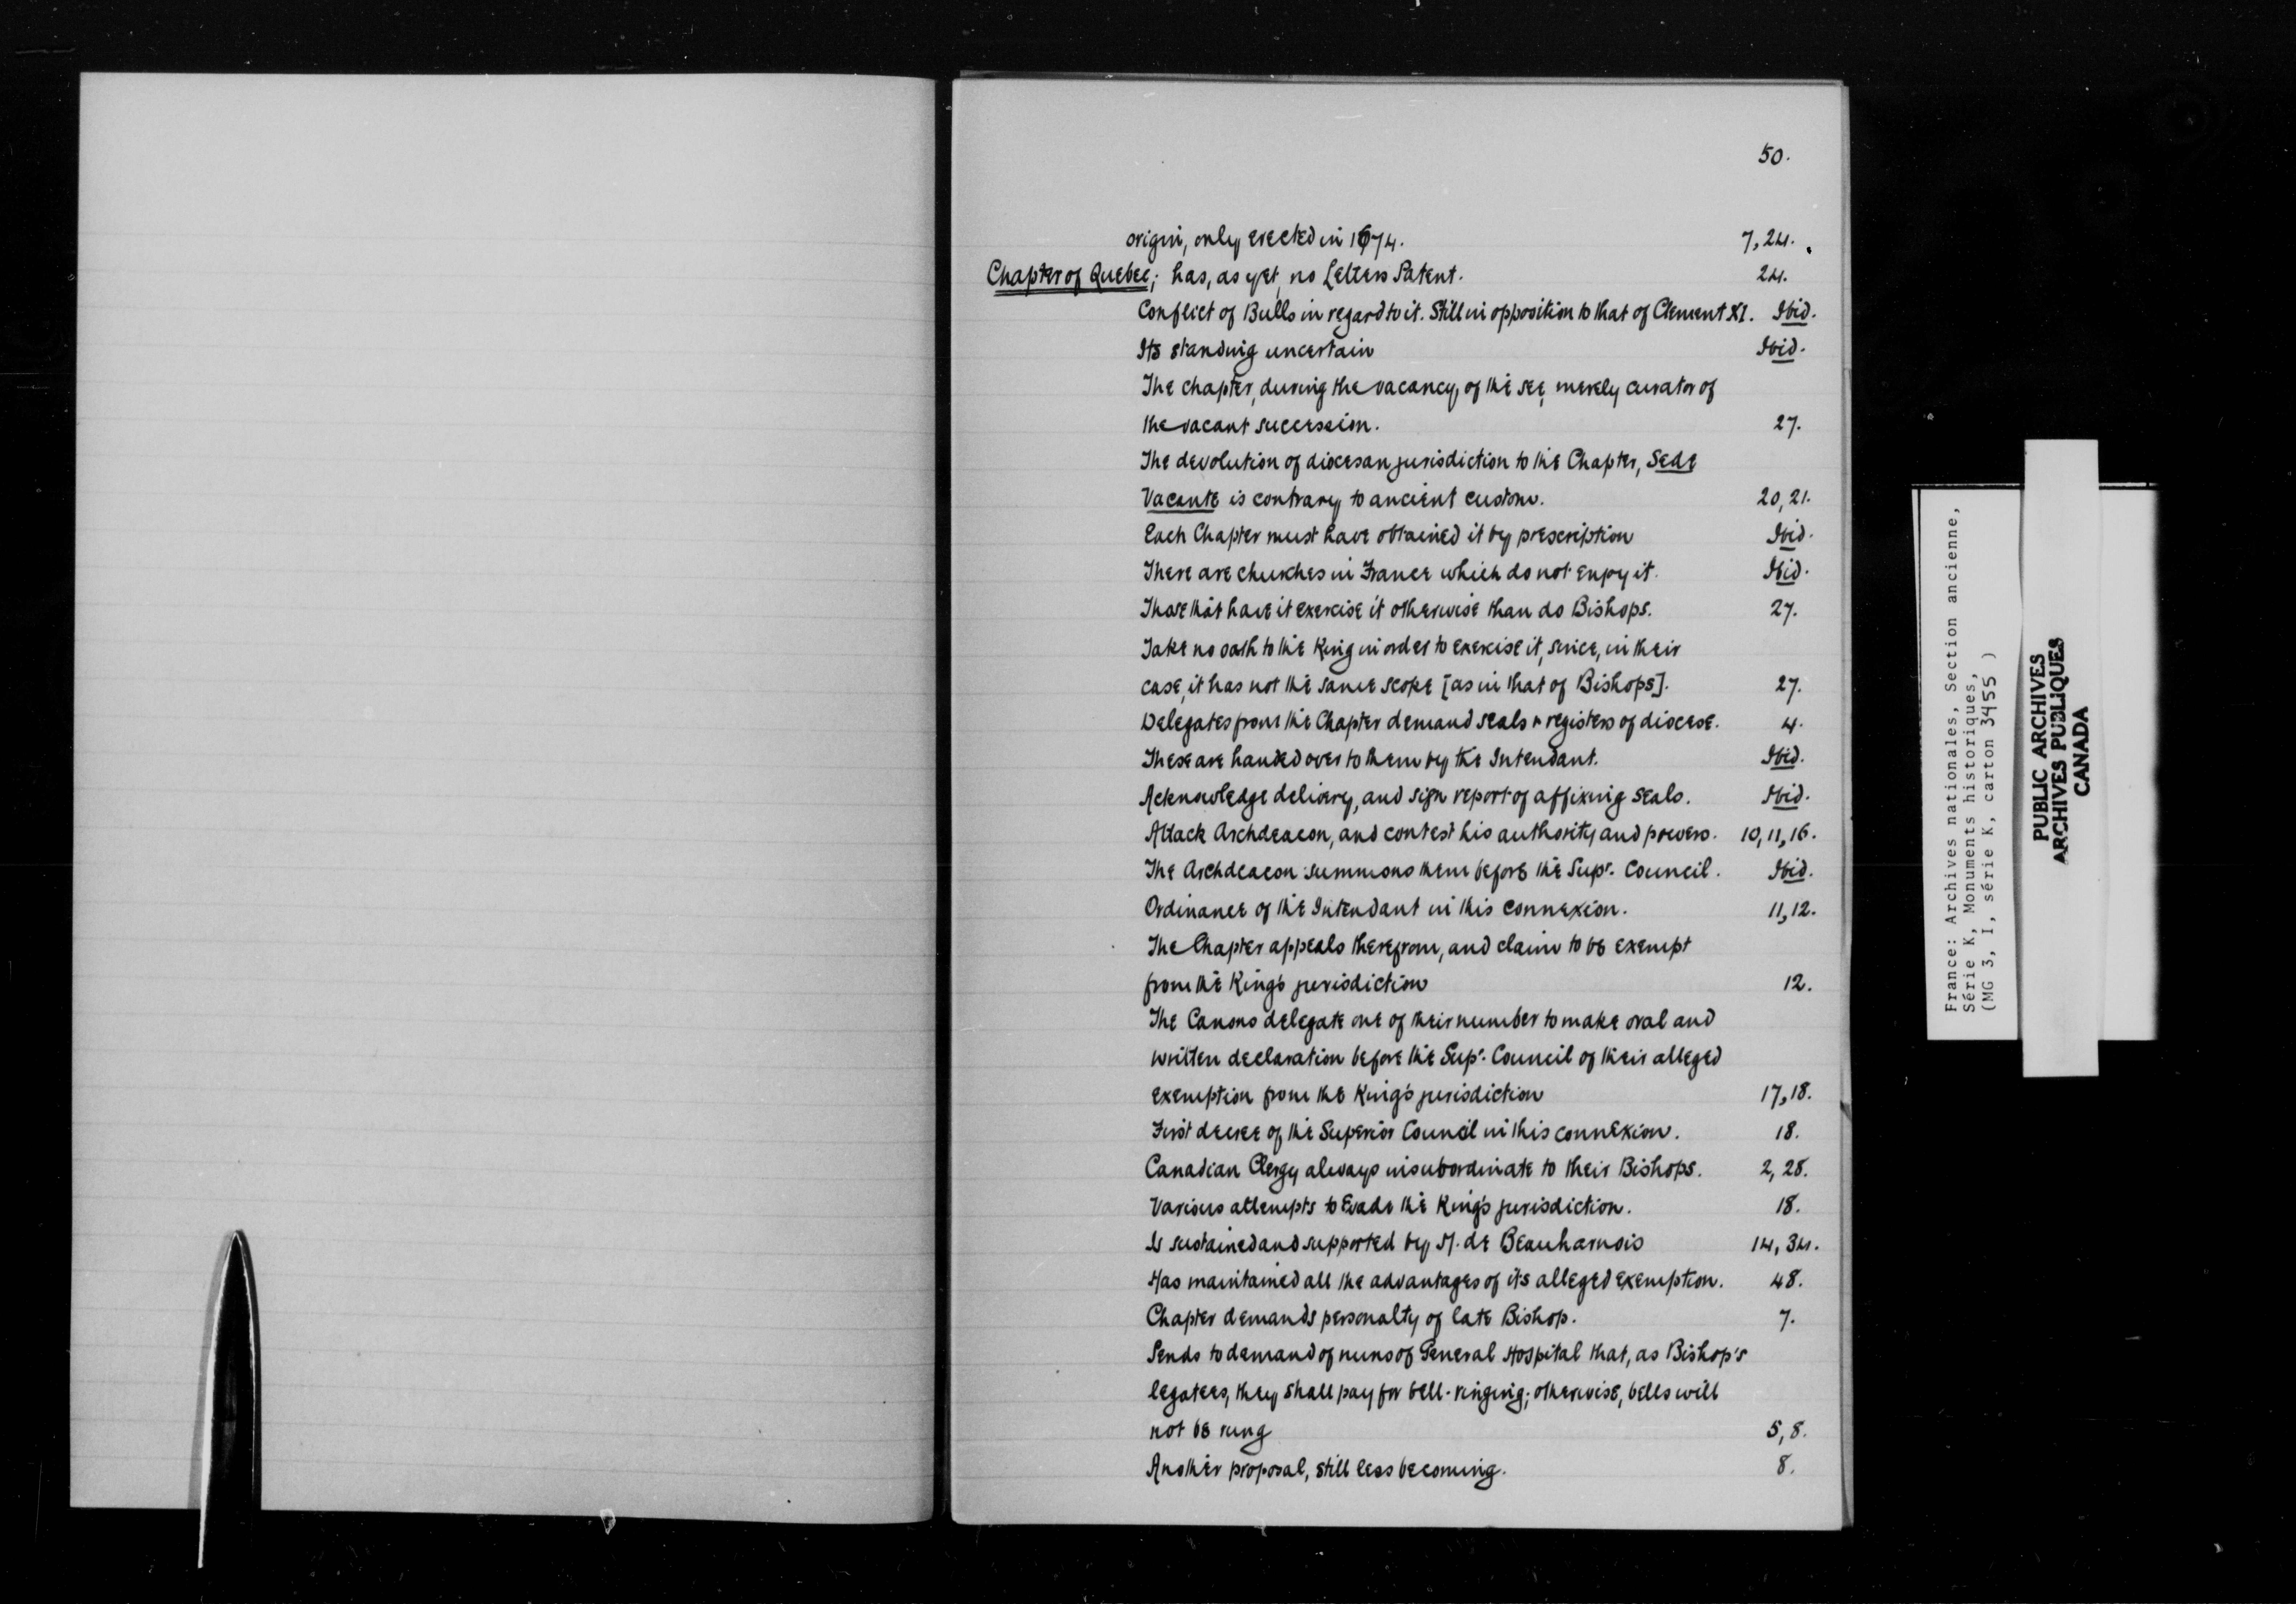 50.
origin, only erected in 1674. 7, 24.
Chapter of Quebec; has, as yet, no Letters Patent. 24.
Conflict of Bulls in regard to it. Still in opposition to that of Clement XI. Ibid.
Its standing uncertain Ibid.
The chapter, during the vacancy of the see, merely curator of
the vacant succession. 27.
The devolution of diocesan jurisdiction to the Chapter, Sede
Vacante is contrary to ancient custom. 20, 21.
Each Chapter must have obtained it by prescription Ibid.
There are churches in France which do not enjoy it. Ibid.
Those that have it exercise it otherwise than do Bishops. 27.
Take no oath to the King in order to exercise it, since, in their
case, it has not the same scope [as in that of Bishops]. 27.
Delegates from the Chapter demand seals & registers of diocese. 4.
These are handed over to them by the Intendant. Ibid.
Acknowledge delivery, and sign report of affixing seals. Ibid.
Attack Archdeacon, and contest his authority and powers. 10, 11, 16.
The Archdeacon summons them before the Supr. Council. Ibid.
Ordinance of the Intendant in this connexion. 11, 12.
The Chapter appeals therefrom, and claim to be exempt
from the King's jurisdiction 12.
The Canons delegate one of their number to make oral and
written declaration before the Supr. Council of their alleged
exemption from the King's jurisdiction 17, 18.
First decree of the Superior Council in this connexion. 18.
Canadian Clergy always insubordinate to their Bishops. 2, 28.
Various attempts to Evade the King's jurisdiction. 18.
Is sustained and supported by M. de Beauharnois 14, 34.
Has maintained all the advantages of its alleged exemption. 48.
Chapter demands personalty of late Bishop. 7.
Sends to demand of nuns of General Hospital that, as Bishop's
legatees, they shall pay for bell-ringing; otherwise, bells will
not be rung 5, 8.
Another proposal, still less becoming. 8.
France: Archives nationales, Section ancienne,
Série K, Monuments historiques,
(MG 3, I, série K, carton 3455 )
PUBLIC ARCHIVES
ARCHIVES PUBLIQUES
CANADA